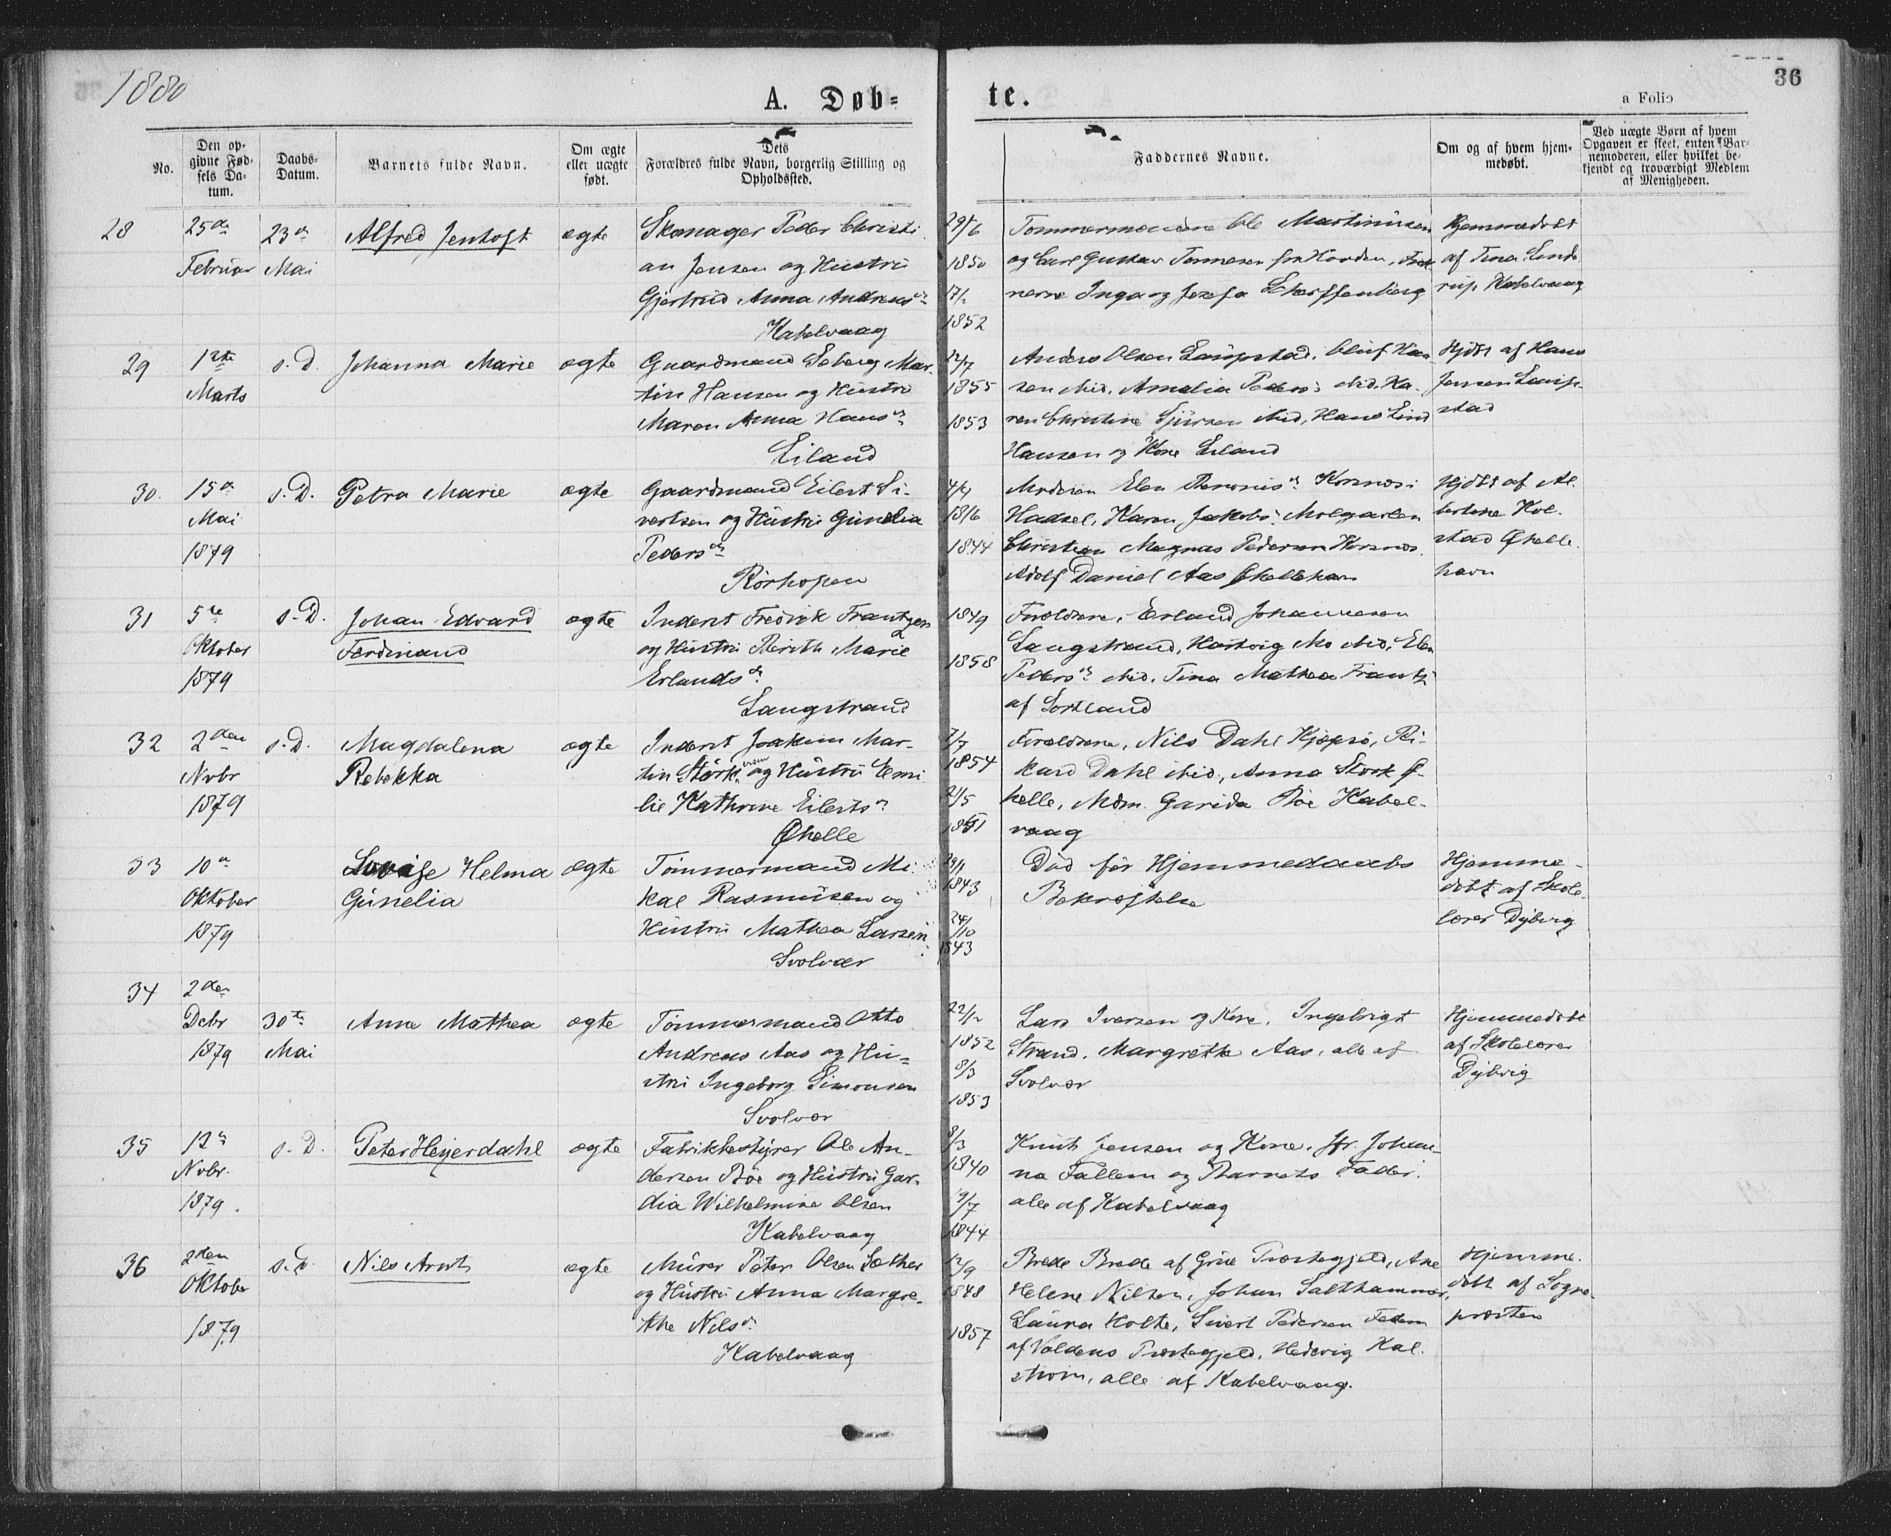 1880
A. Døb-
te.
36
a Folio
No.
Den op-
givne Fød-
sels Da-
tum.
Daabs-
Datum.
Barnets fulde Navn.
Om ægte
eller uægte
født.
Dets
Forældres fulde Navn, borgerlig Stilling og
Opholdssted.
Faddernes Navne.
Om og af hvem hjem-
medøbt.
Ved uægte Børn af hvem
Opgaven er skeet, enten Bar-
nemoderen, eller hvilket be-
kjendt og troværdigt Medlem
af Menigheden.
28
25de
Februar
23de
Mai
Alfred Jentoft
ægte
Skomager Peder Christi
an Jensen og Hustru
Gjertrud Anna Andreasdr
Kabelvaag
1850
17/2
1852
Martinusen
og Carl Gustav Tønnesen fra
nerne Inga og Josefa
Hjemmedøbt
af Tina
Kabelvaag
29
12te
Marts
s. D.
Johanna Marie
ægte
Gaardmand Seberg Mar-
tin Hansen og Hustru
Maren Anna Hansdr
Eiland
22/7
1855
1853
Anders Olsen Laupstad, Oluf Han
sen ibid, Amalia Pedersdr ibid, Ka-
ren Christine Sjursen ibid, Hans Lind
Hansen og Kone Eiland
Hjdbt af Hans
Jensen Laup-
stad
30.
15de
Mai
1879
s. D.
Petra Marie
ægte
Gaardmand Eilert Si-
vertsen og Hustru Gunelia
Pedersdr
Rørhopen
1816
1844
Moderen Elen Korsnes i
Hadsel, Karen Jakobsdr Molgaarden
Christian Magnus Pedersen Korsnes
Adolf Daniel Aas Øhellehavn
Hjdbt af Al
bertine Kol-
stad Øhelle
havn
31
5te
Oktober
1879
s. D.
Johan Edvard
Ferdinand
ægte
Inderst Fredrik Frantzen
og Hustru Berith Marie
Erlandsdr
Langstrand
1849
1858
Forældrene, Erland Johannesen
Langstrand, Hartvig Mo ibid, Elen
Pedersdr ibid. Tina Mathea Frantz
af Sortland
32
2den
Nvbr
1879
s. D.
Magdalena
Rebekka
ægte
Inderst Joakim Mar-
tin Størk og Hustru Emi
lie Kathrine Eilertsdr
Øhelle
7/7
1854
21/5
1851
Forældrene, Nils Dahl Kjøpsø, Ri-
kard Dahl ibid, Anna Stork Ø-
helle, Mdm. Garida Bøe Kabel-
vaag
33
10de
Oktober
1879
Lovise Helma
Gunelia
ægte
Tømmermand Mi-
kal Rasmusen og
Hustru Mathea Larsen
Svolvær
1843
24/10
1843
Død før Hjemmedaabs
Bekræftelse
Hjemme-
døbt af Skole-
lærer Dybvig
34
2den
Dcbr
1879
30te
Mai
Anne Mathea
ægte
Tømmermand Otto
Andreas Aas og Hu-
stru Ingeborg Simonsen
Svolvær
22/12
1852
8/3
1853
Lars Iversen og Kone, Ingebrigt
Strand, Margrethe Aas, alle af
Svolvær
Hjemmedøbt
af Skolelærer
Dybvig
35
12te
Nvbr.
1879.
s. D.
Peter Heyerdahl
ægte
Fabrikbestyrer Ole An-
dersen Bøe og Hustru Gar-
dia Wilhelmine Olsen
Kabelvaag
8/3
1840
19/7
1844
Knut Jensen og Kone, Jfr. Johan-
na Fallem og Barnets Fader
alle af Kabelvaag
36
2den
Oktober
1879
s. D.
Nils Arnt
ægte
Murer Peter Olsen Sæther
og Hustru Anna Margre-
the Nilsdr
Kabelvaag
12/9
1848
1857
Brede Brede af Grue Præstegjeld, Ane
Helene Nilsen, Johan Salthammer,
Laura Holte, Sivert Pedersen
af Voldens Præstegjeld, Hedevig Kal-
strøm, alle af Kabelvaag.
Hjemme-
døbt af Sogne-
præsten